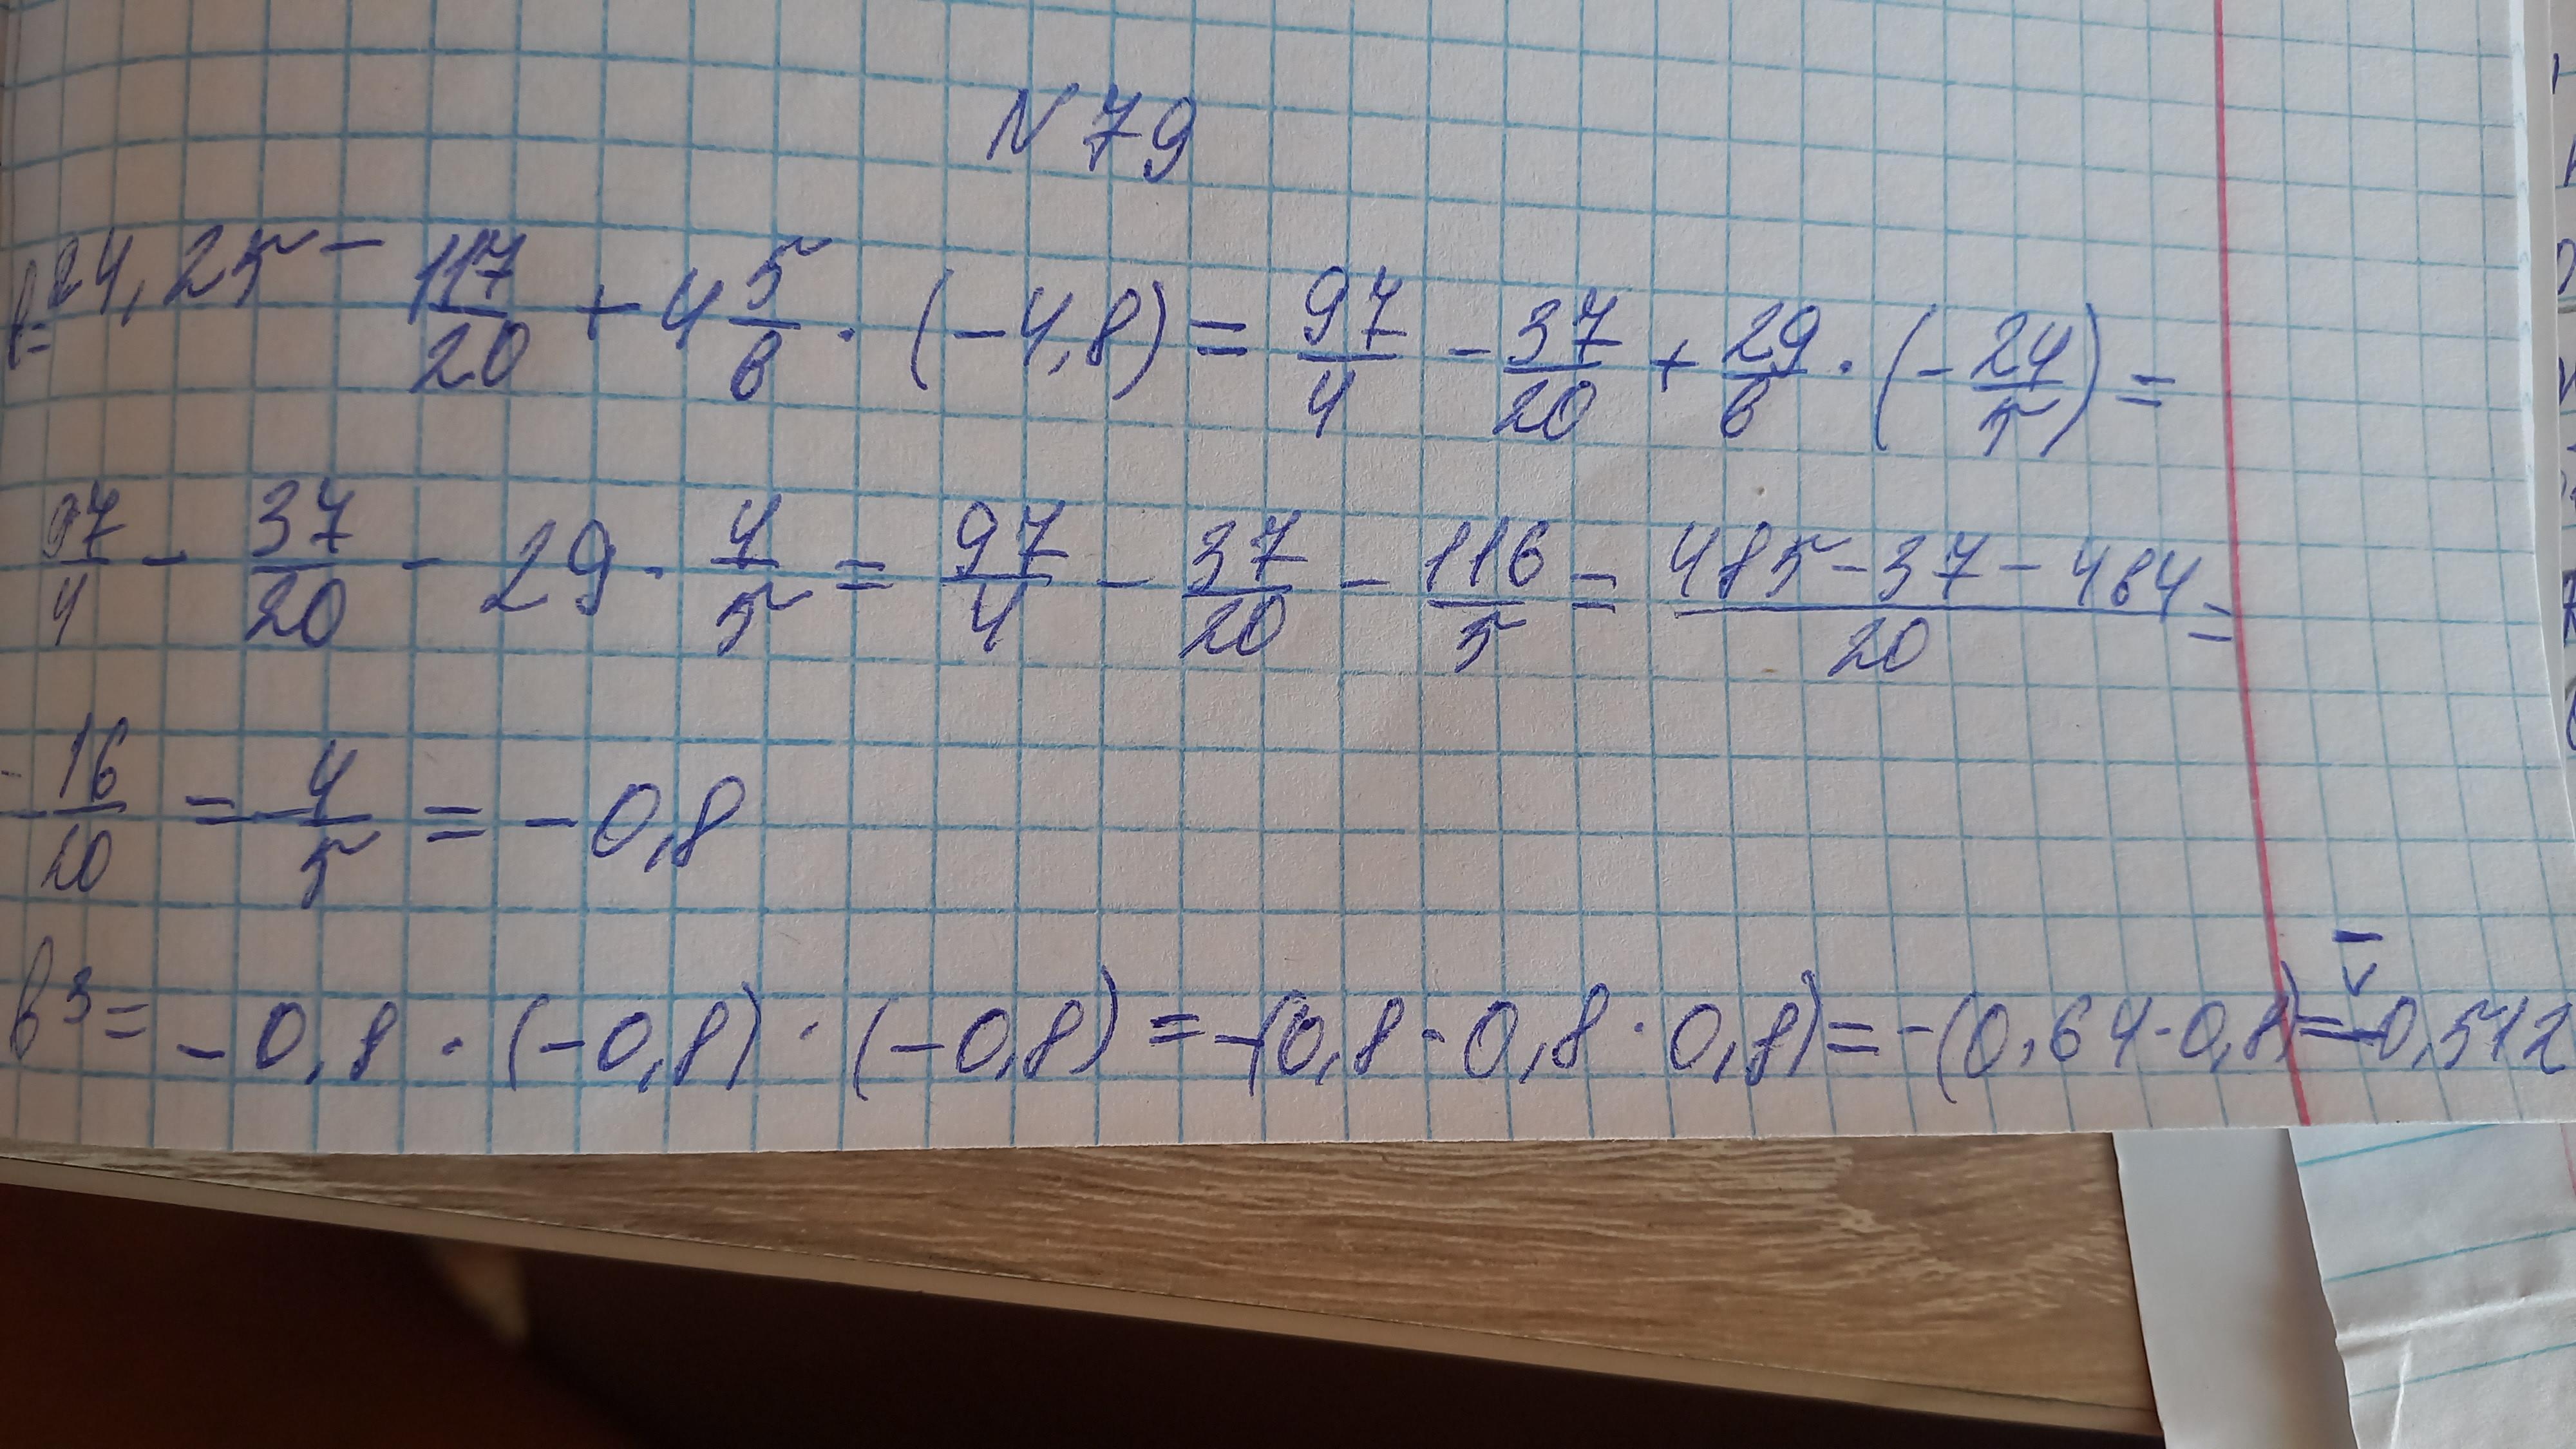 N 79
b=24,25 - 117/20 + 4 5/6 · (-4,8) = 97/4 - 37/20 + 29/6 · (-24/5) =
97/4 - 37/20 - 29 · 4/5 = 97/4 - 37/20 - 116/5 = (485-37-464)/20 =
-16/20 = -4/5 = -0,8
b³= -0,8 · (-0,8) · (-0,8) = -(0,8 · 0,8 · 0,8) = -(0,64·0,8)=-0,512